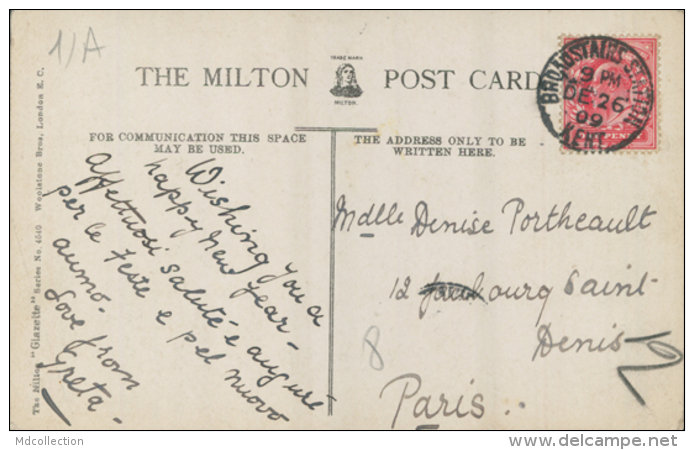 1/A
TRADE MARK
MILTON.
THE MILTON POST CARD
FOR COMMUNICATION THIS SPACE
MAY BE USED.
THE ADDRESS ONLY TO BE
WRITTEN HERE.
BROADSTAIRS STATION
9 PM
DE 26
09
KENT
The Milton "Glazette" Series No. 4540 Woolstone Bros, London E. C.
Wishing you a
happy New Year -
Affettuosi saluti e auguri
per le feste e pel nuovo
anno.
Love from
Greta -
Mdlle Denise Portheault
12 faubourg Saint-
Denis
Paris..
8
Mdcollection
delcampe.net